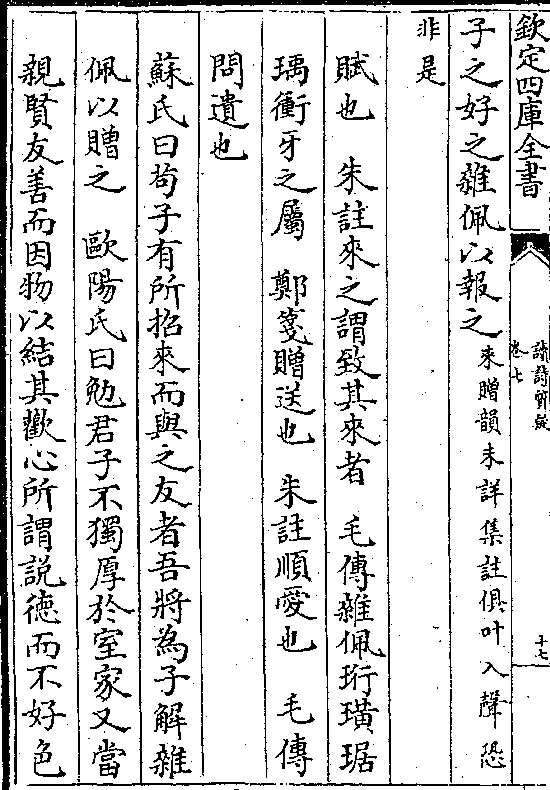 欽定四庫全書
讀詩質疑
卷七
十七
子之好之雜佩以報之來贈韻未詳集註俱叶入聲恐
非是
賦也　朱註來之謂致其來者　毛傳雜佩珩璜琚
瑀衝牙之屬　鄭箋贈送也　朱註順愛也　毛傳
問遺也
蘇氏曰茍子有所招來而與之友者吾將為子解雜
佩以贈之　歐陽氏曰勉君子不獨厚於室家又當
親賢友善而因物以結其歡心所謂説徳而不好色